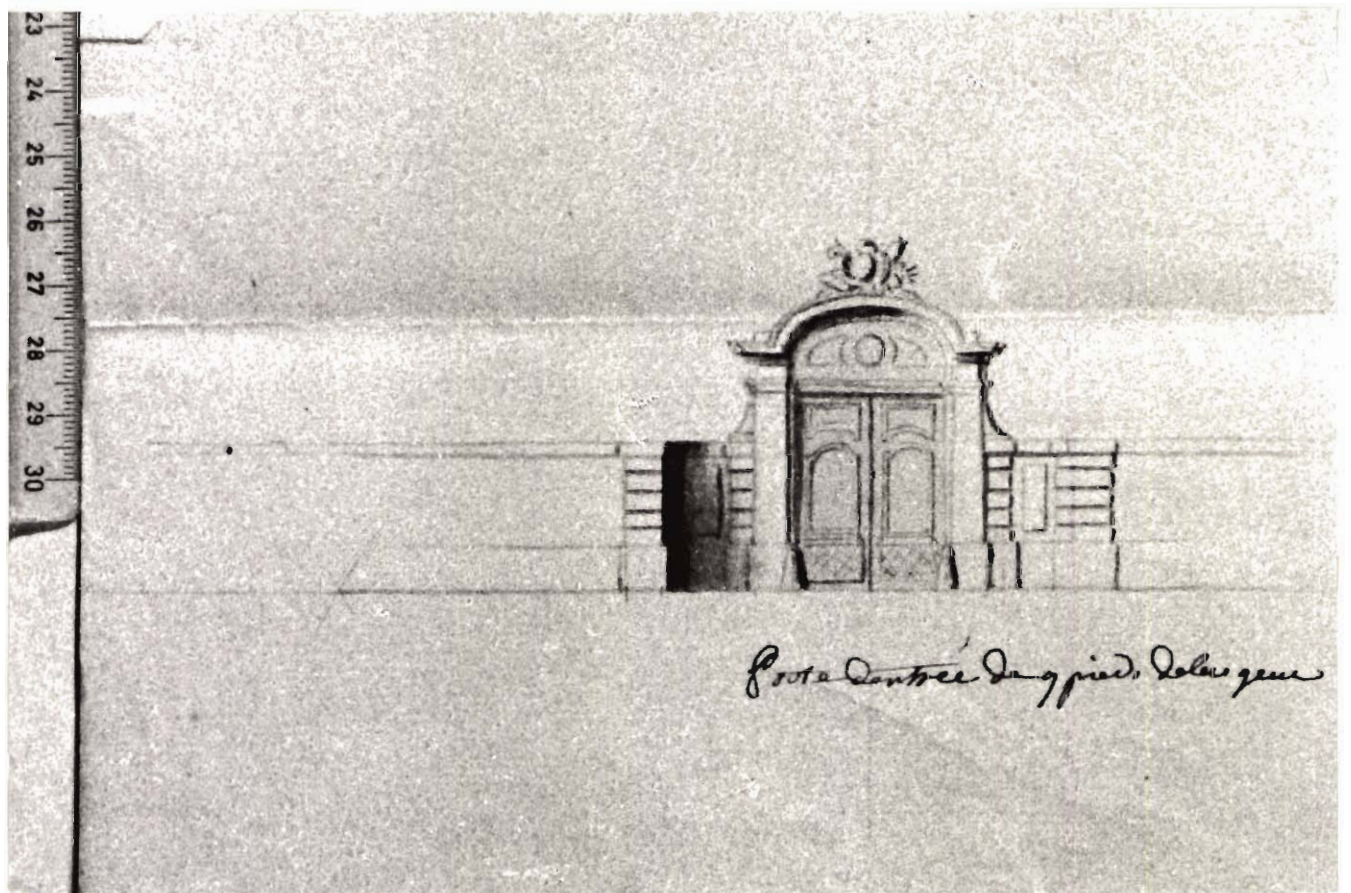 23
24
25
26
27
28
29
30
Porte dentrée de 9 pieds delargeur